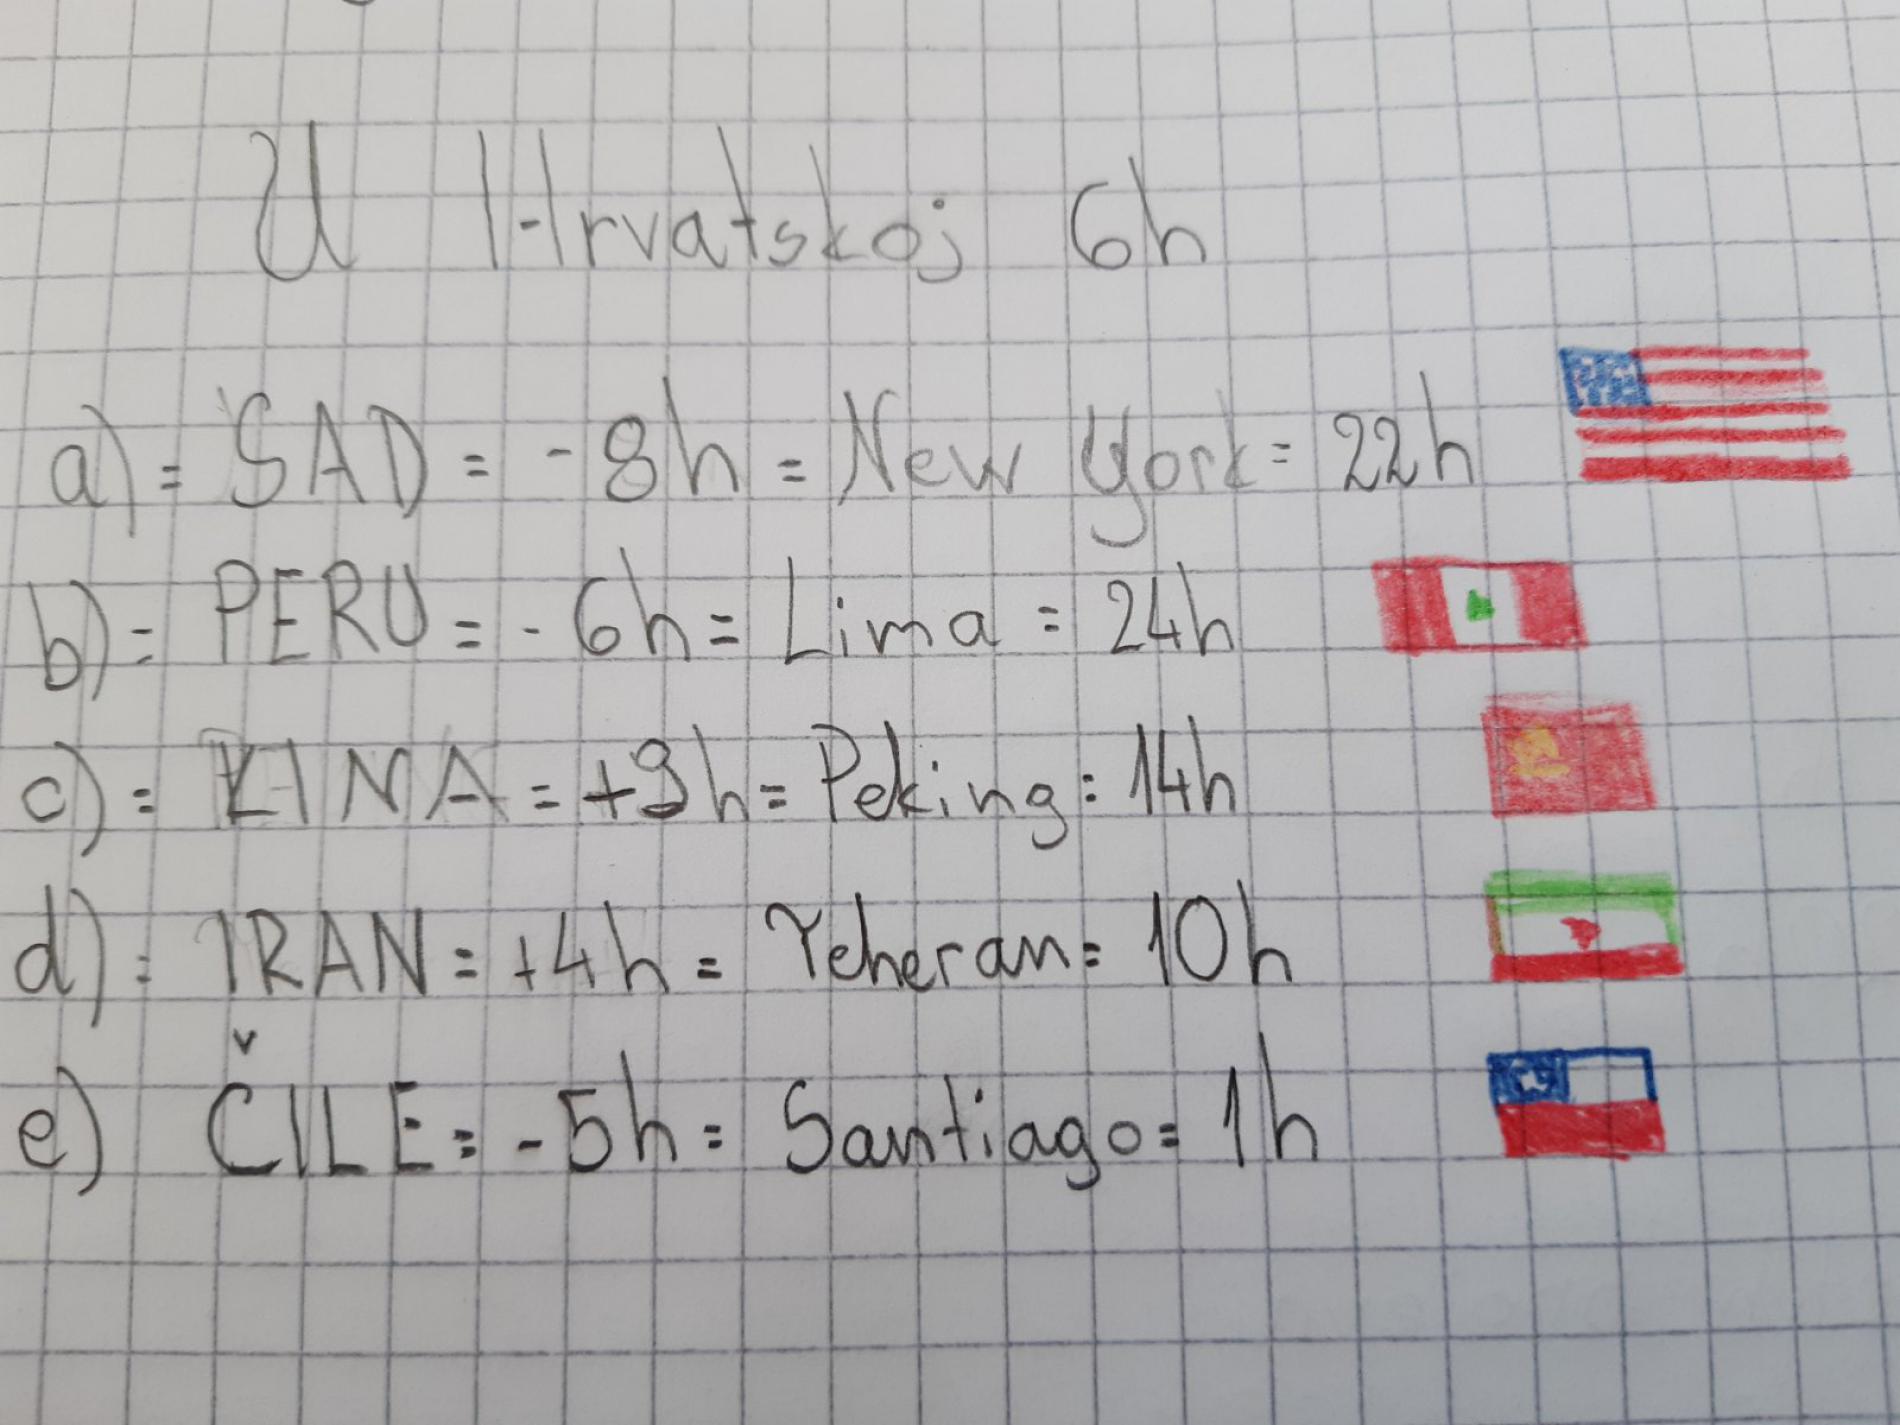 U Hrvatskoj 6h
a) = SAD = -8h = New York = 22h
b) = PERU = -6h = Lima = 24h
c) = KINA = +8h = Peking = 14h
d) = IRAN = +4h = Teheran = 10h
e) ČILE = -5h = Santiago = 1h